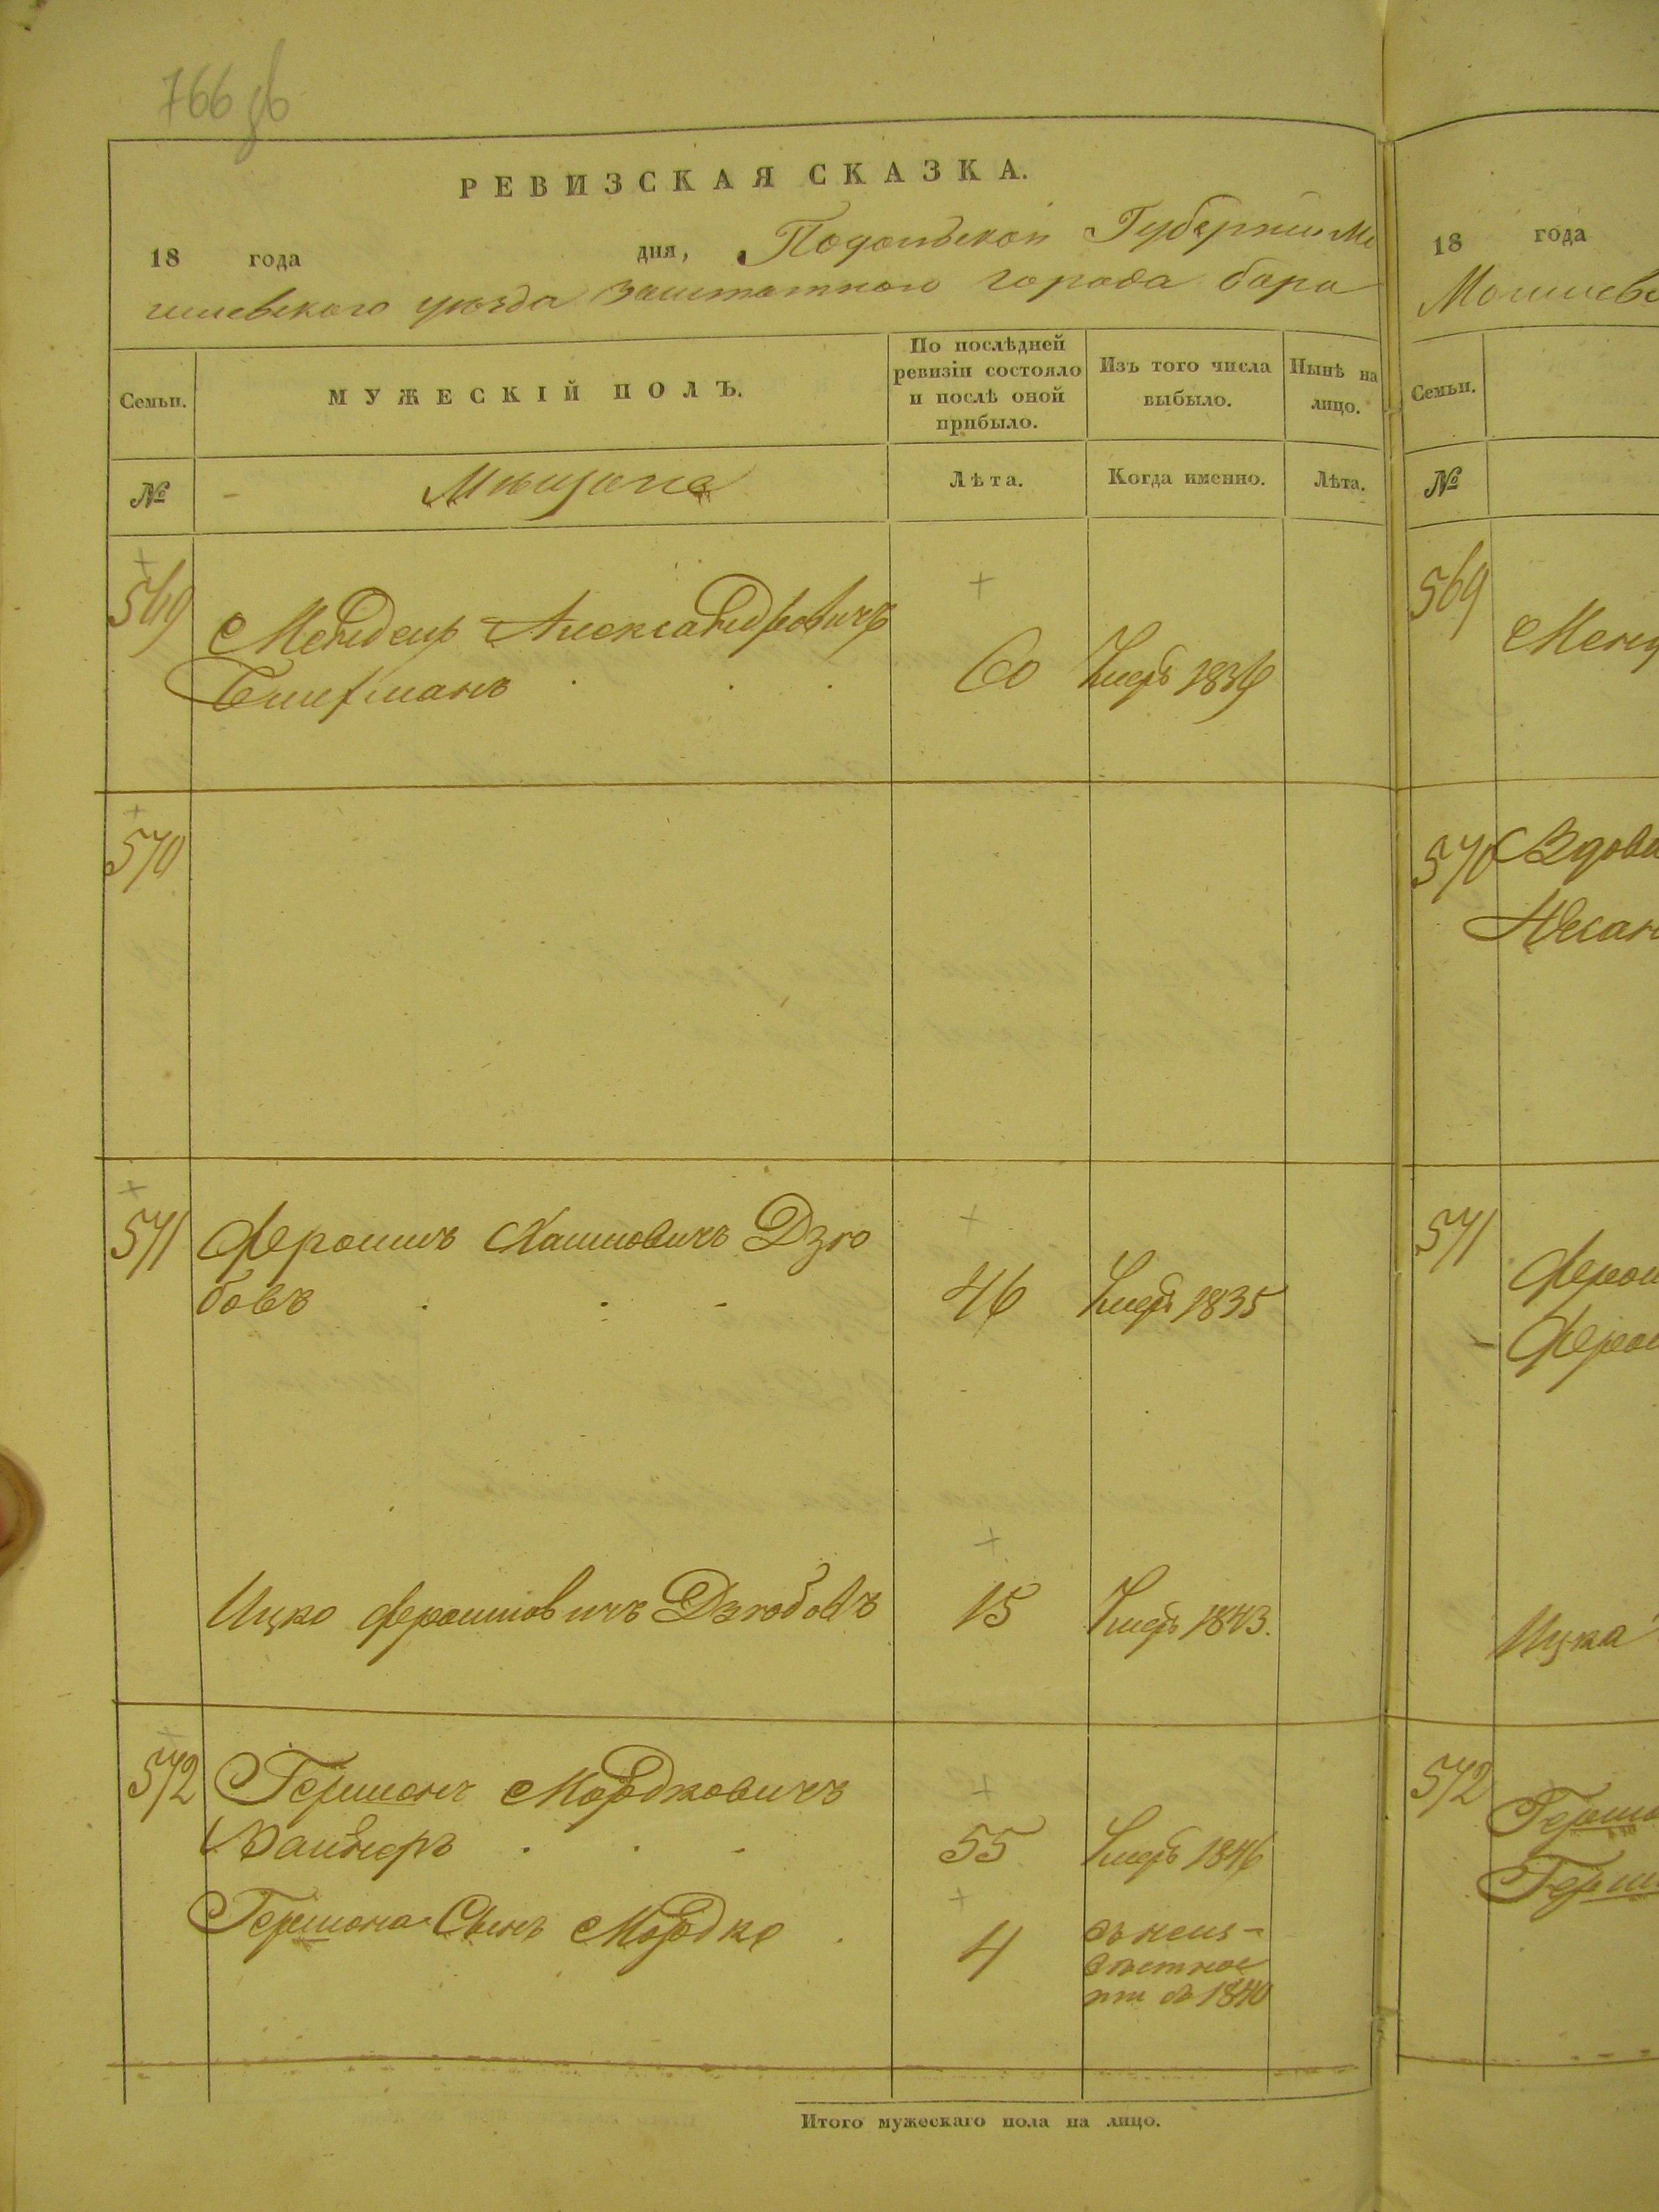 766 зв
РЕВИЗСКАЯ СКАЗКА.
18 года дня, Подольской Губернии Мо
гилевского уезда заштатного города бара
Семьи. МУЖЕСКІЙ ПОЛЪ. По послѣдней ревизіи состояло и послѣ оной прибыло. Изъ того числа выбыло. Нынѣ на лицо.
№ Мещане Лѣта. Когда именно. Лѣта.
569 Мендель Александровичъ
60 Умеръ 1836
570
571 Фероимъ Хаимовичъ Дзю
бовъ 46 Умеръ 1835
Ицко Фероимовичъ Дзюбовъ 15 Умеръ 1843.
572 Гершонъ Мордковичъ
Вайнеръ 55 Умеръ 1846
Гершона Сынъ Мордко 4 въ неиз-
вѣстное
ти въ 1840
Итого мужескаго пола на лицо.
18 года
Могилевс
Семьи.
№
569 Менд
570 Вдова
571 Ферои
Ферои
Ицка
572 Гершо
Герш